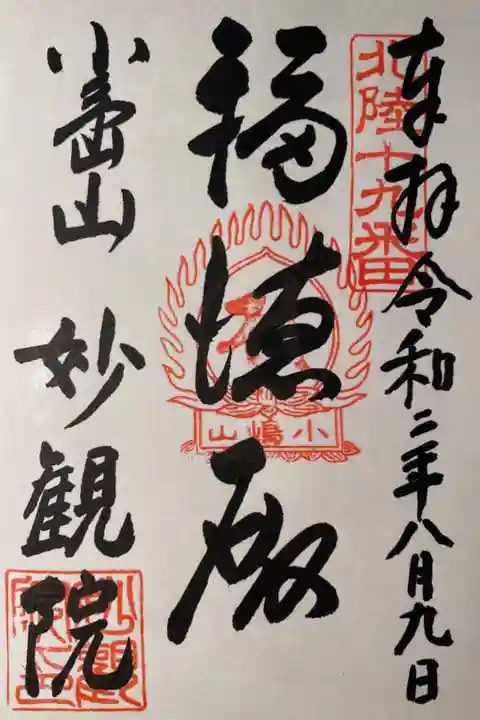 奉拝令和二年八月九日
北陸十九番
福徳殿
小嶋山
小嶌山 妙観院